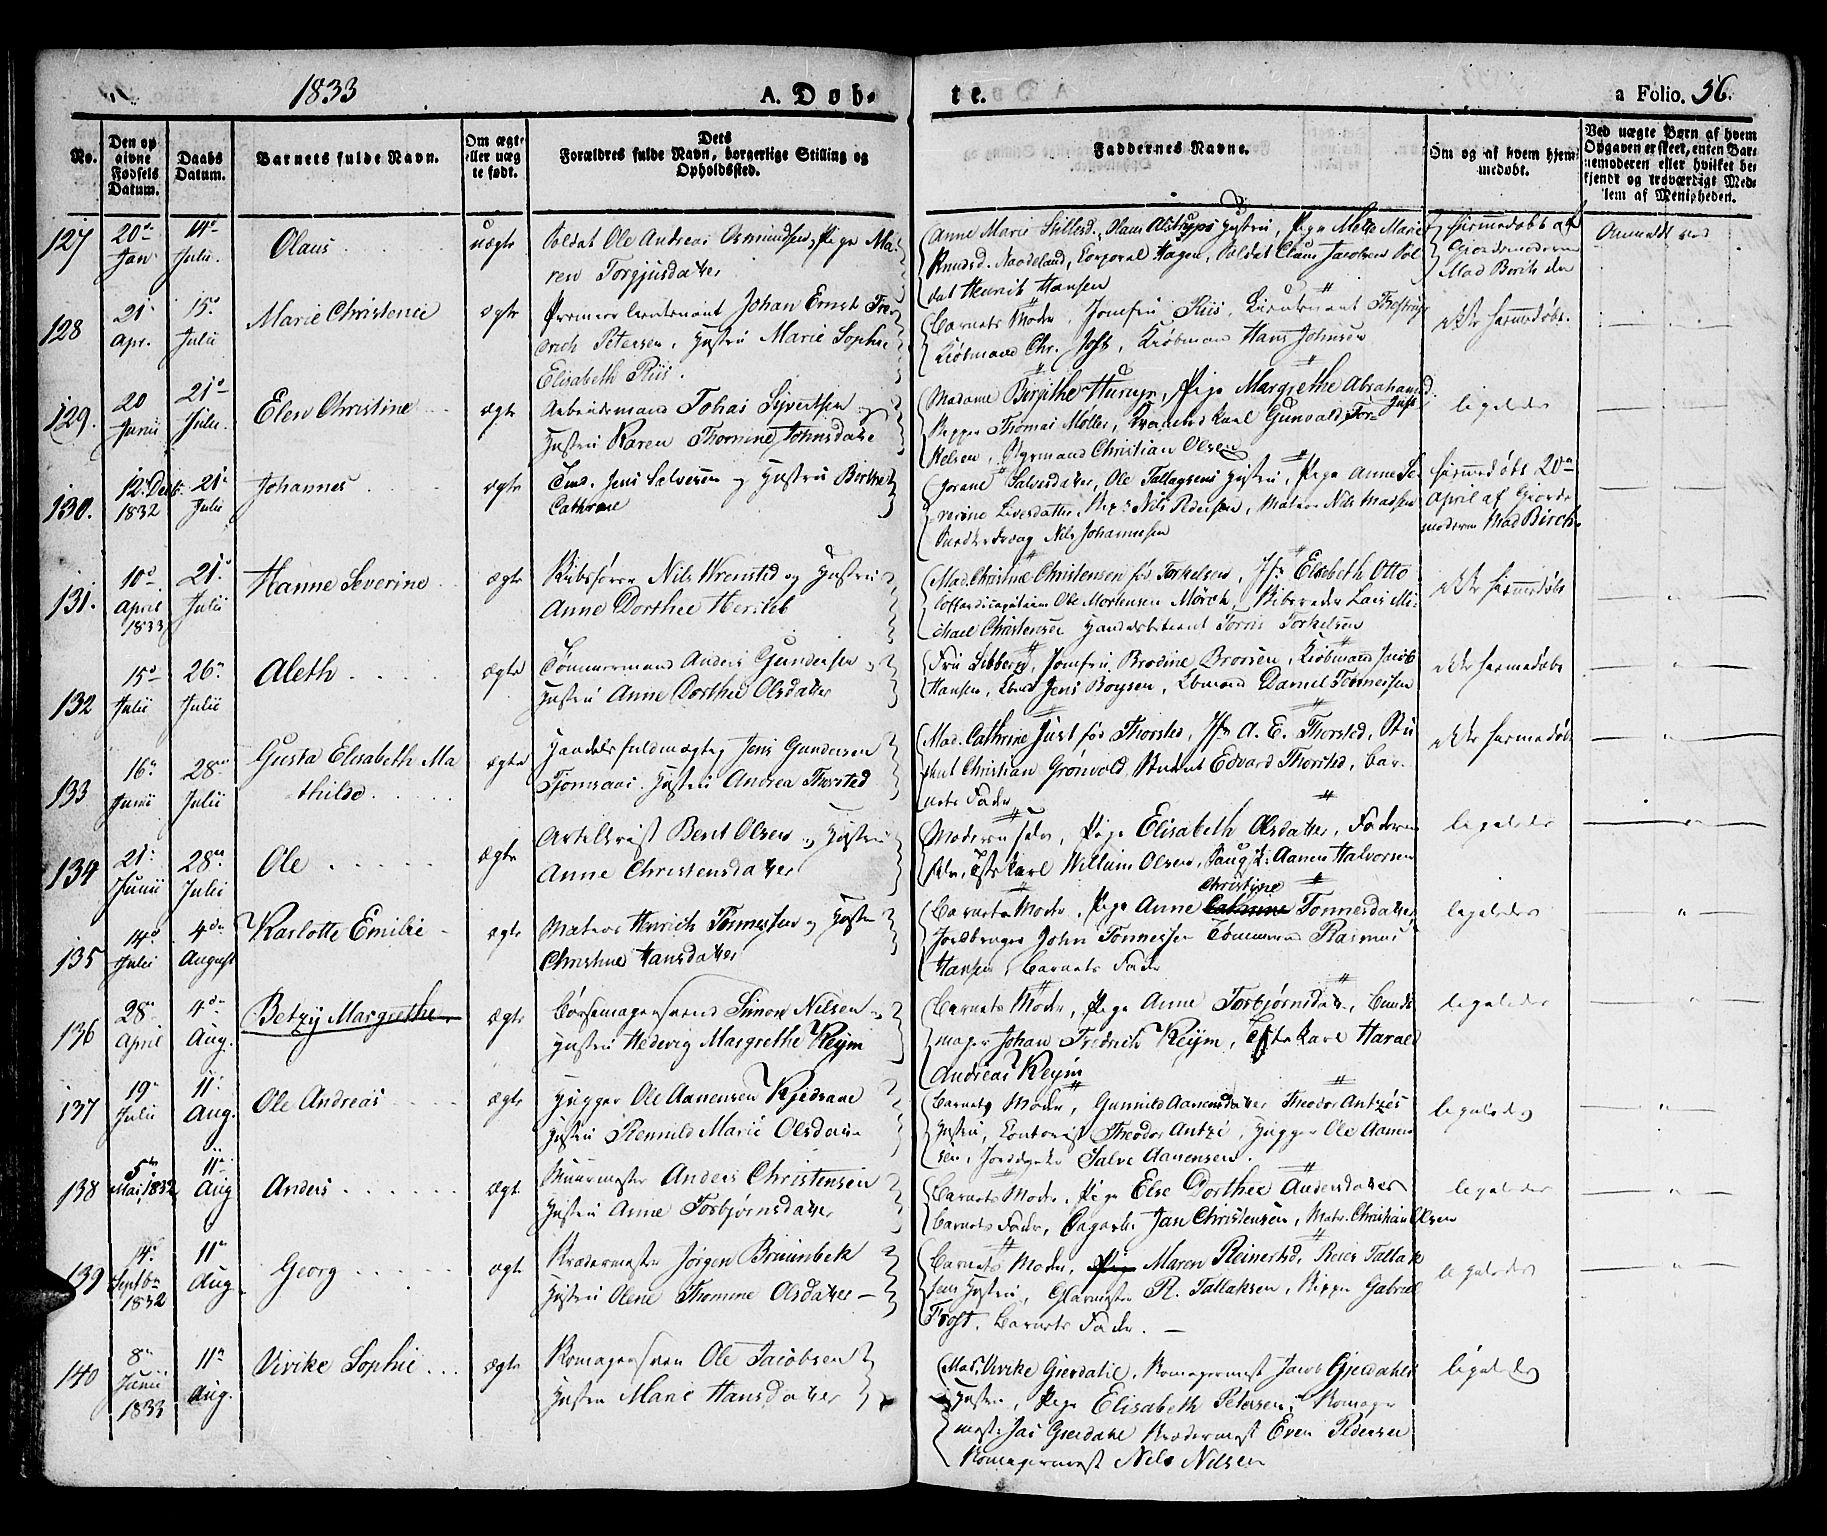 1833
A. Døb-
te.
a Folio. 56.
No.
Den op
givne
Fødsels
Datum.
Daabs
Datum.
Barnets fulde Navn.
Om ægte
eller uæg
te født.
Dets
Forældres fulde Navn, borgerlige Stilling og
Opholdssted.
Faddernes Navne.
Om og af hvem hjem-
medøbt.
Ved uægte Børn af hvem
Opgaven er skeet, enten Bar-
nemoderen eller hvilket be-
kjendt og troværdigt Med-
lem af Menigheden.
127
20de
Jan
14de
Julii.
Olaus
uægte
Soldat Ole Andreas Osmundsen, Pige Ma-
ren Torgjusdatter
Anne Marie Hustru, Pige Mette Marie
Knudsd. Naadeland, Corporal Hagen, Soldat Claus Jacobsen Sol-
dat Henrik Hansen
hjemmedøbt af
Gjordemoderen
Mad
Anmeldt ved
128
21
Apr.
15
Julii
Marie Christence
ægte
Premier Lieutenant Johan Ernst Fre-
drich Petersen, Hustru Marie Sophie
Elisabeth Riis.
Barnets Moder, Jomfru Riis, Lieutenant
Kiøbmand Chr. Just, Kiøbmand Hans Johnsen
ikke hjemmedøbt.
129.
20
Junii
21
Julii.
Elen Christine
ægte
Arbeidsmand Tobias Syvertsen og
Hustru Karen Thomine Johnsdatter
Madame Birgithe Pige Margrethe Abrahamsd.
Skipper Thomas Møller, Gunvald Tor-
kelsen, Styrmand Christian Olsen
ligeledes
130.
12. Decb.
1832
21
Julii
Johannes
ægte
Jens Salvesen og Hustru Birthe
Cathrine
Jorane Salvesdatter, Ole Tallagsens Hustru, Pige Anne Se-
verine Nils Pedersen, Matros Nils Madsen
Nils Johannesen
hjemmedøbt 20de
April af Gjorde
moderen Mad Birch
131.
10de
April
1833
21
Julii
Hanne Severine
ægte
Skibsfører Nils Wrensted og Hustru
Anne Dorthee Hersleb
Mad. Christine Christensen fød Torkelsen, Jfr Elisebeth Otto
Ole Mortensen Mørch, Skibsreder Lars Mi-
chael Christensen Torkelsen
ikke hjemmedøbt
132
15de
Julii
26
Julii
Aleth
ægte
Tømmermand Anders Gundersen og
Hustru Anne Dorthea Olsdatter
Fru Sibbern, Jomfru Brodine Brorsen, Kiøbmand Jacob
Hansen, Jens Boysen, Daniel Tønnesen
ikke hjemmedøbt
133
16
Junii
28
Julii
Gusta Elisabeth Ma
thilde
ægte
Handelsfuldmægtig Jens Gundersen
Tjomsaas. Hustru Andrea Thorsted
Mad. Cathrine Just fød Thorsted, Jfr A. E. Thorsted, Stu
dent Christian Grønvold, Student Edvard Thorsted, Bar-
nets Fader
ikke hjemmedøbt
134
21
Junii
28
Julii
Ole
ægte
Artillerist Bent Olsen og Hustru
Anne Christensdatter
Moderen selv, Pige Elisabeth Olsdatter, Faderen
selv, William Olsen, Aanen Halvorsen
ligeledes
135
14
Julii
4de
August
Karlotte Emilie
ægte
Matros Hinrich Tønnessen og Hustru
Christine Hansdatter
Barnets Moder, Pige Anne Christine Tønnesdatter
Jordbruger John Tønnessen Tømmermand Rasmus
Hansen, Barnets Fader
ligeledes
136
28
April
4de
Aug.
Betzy Margrethe
ægte
Børsemagersvend Simon Nilsen og
Hustru Hedevig Margrethe Keym
Barnets Moder, Pige Anne Torbjørnsdatter, Bundt
mager Johan Fredrich Keym, Harald
Andreas Keym
ligeledes
137
19
Julii
11
Aug.
Ole Andreas
ægte
Hugger Ole Aanensen Kjedsaae
Hustru Remuld Marie Olsdatter
Barnets Moder, Gunnild Aanensdatter Theodor Antzes
Hustru, Contorist Theodor Antze, Hugger Ole Aanen
sen, Salve Aanensen.
ligeledes
138
5te
Mai 1832
11
Aug
Anders
ægte
Muurmester Anders Christensen
Hustru Anne Torbjørnsdatter
Barnets Moder, Pige Else Dorthee Andersdatter
Barnets Fader, Jan Christensen, Matr. Christian Olsen
ligeledes
139
14
Septbr
1832
11
Aug
Georg
ægte
Jørgen Bruunbek
Hustru Olene Thomine Olsdatter
Barnets Moder, Maren Reinertsd, Reier Tallak
sens Hustru, Glarmester R. Tallaksen, Skipper Gabriel
Frost, Barnets Fader.
ligeledes
140
8
Junii
1833
11
Aug.
Vivike Sophie
ægte
Skomagersvend Ole Jacobsen
Hustru Marie Hansdatter
Mad. Vivike Gierdahl, Skomagermest Jacob Gierdahls
Hustru, Pige Elisabeth Petersen, Skomager
mest: Jac Gierdahl Even Pedersen
Skomagermest Nils Nilsen
ligeledes